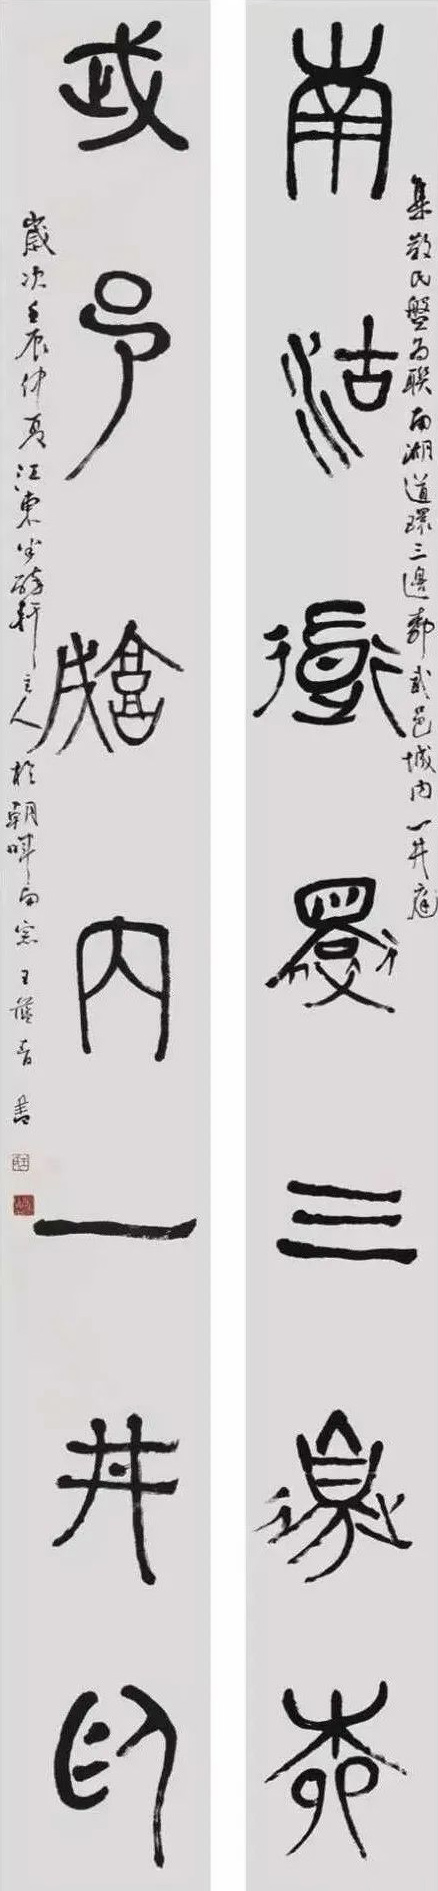 集散氏盤為聯南湖道環三邊柳武邑城内一井庭
南湖道環三邊柳
武邑城内一井庭
歲次壬辰仲夏江東軒主人於朝暉南窗王書